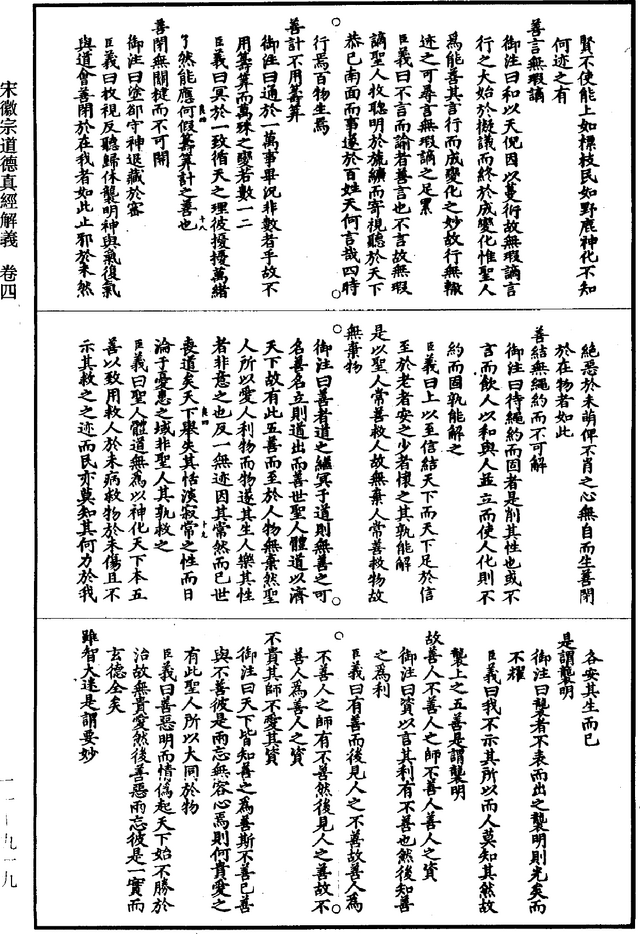 宋徽宗道德真經解義　卷四
賢不使能上如標枝民如野鹿神化不知
何迹之有
善言無瑕謫
御注曰和以天倪因以蔓衍故無瑕謫言
行之大始於擬議而終於成變化惟聖人
爲能善其言行而成變化之妙故行無轍
迹之可尋言無瑕謫之足累
臣義曰不言而諭者善言也不言故無瑕
謫聖人收聰明於旒纊而寄視聽於天下
恭己南面而事遂於百姓天何言哉四時
行焉百物生焉
善計不用籌算
御注曰通於一萬事畢況非數者乎故不
用籌算而萬殊之變若數一二
臣義曰冥於一致循天之理彼擾擾萬緒
了然能應何假籌算計之善也
良四
十八
善閉無關揵而不可開
御注曰塗卻守神退藏於密
臣義曰收視反聽歸休襲明神與氣復氣
與道會善閉於在我者如此止邪於未然
絕惡於未萌俾不肖之心無自而生善閉
於在物者如此
善結無繩約而不可解
御注曰待繩約而固者是削其性也或不
言而飲人以和與人並立而使人化則不
約而固孰能解之
臣義曰上以至信結天下而天下足於信
至於老者安之少者懷之其孰能解
是以聖人常善救人故無棄人常善救物故
無棄物
御注曰善者道之繼冥于道則無善之可
名善名立則道出而善世聖人體道以濟
天下故有此五善而至於人物無棄然聖
人所以愛人利物而物遂其生人樂其性
者非意之也反一無迹因其常然而已世
喪道矣天下舉失其恬淡寂常之性而日
良四
十九
淪于憂患之域非聖人其孰救之
臣義曰聖人體道無爲以神化天下本五
善以致用救人於未病救物於未傷且不
示其救之之迹而民亦莫知其何力於我
各安其生而已
是謂襲明
御注曰襲者不表而出之襲明則光矣而
不耀
臣義曰我不示其所以而人莫知其然故
襲上之五善是謂襲明
故善人不善人之師不善人善人之資
御注曰資以言其利有不善也然後知善
之爲利
臣義曰有善而後見人之不善故善人爲
不善人之師有不善然後見人之善故不
善人爲善人之資
不貴其師不愛其資
御注曰天下皆知善之爲善斯不善已善
與不善彼是兩忘無容心焉則何貴愛之
有此聖人所以大同於物
臣義曰善惡明而情僞起天下始不勝於
治故無貴愛然後善惡兩忘彼是一實而
玄德全矣
雖智大迷是謂要妙
一一－九一九